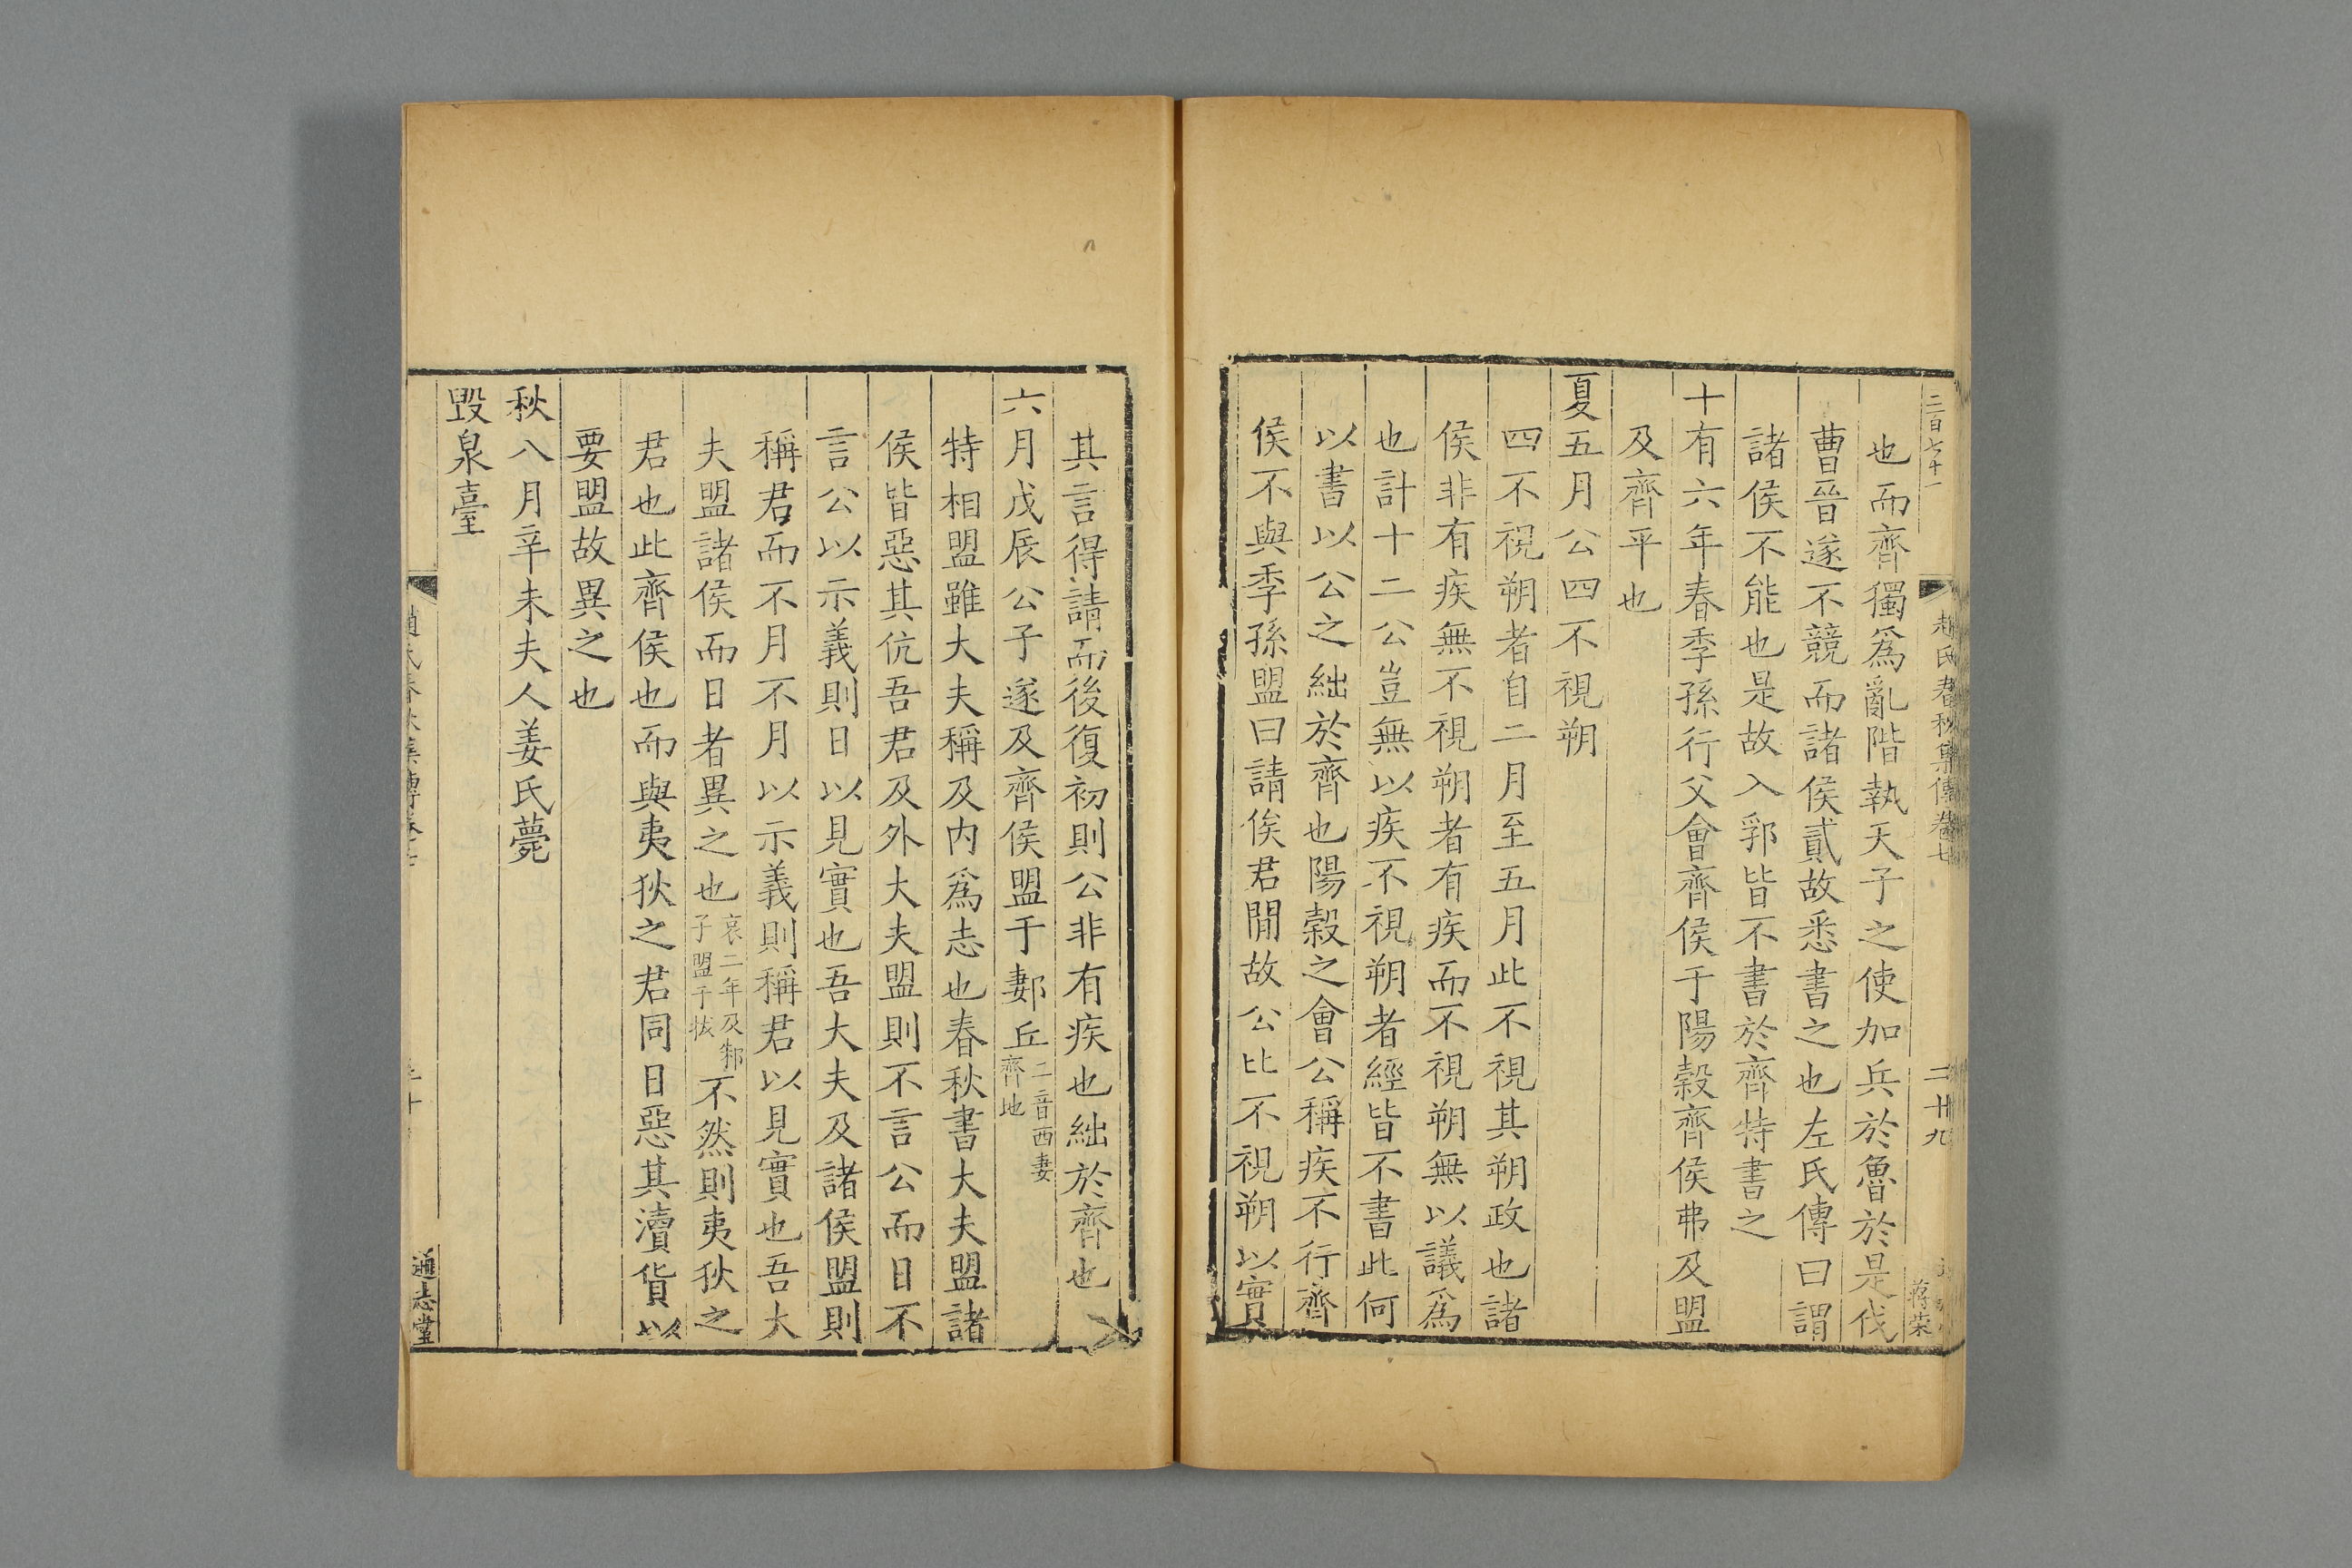 二百七十一
趙氏春秋集傳卷七
二十九
蔣榮
也而齊獨爲亂階執天子之使加兵於魯於是伐
曹晉遂不競而諸侯貳故悉書之也左氏傳曰謂
諸侯不能也是故入郛皆不書於齊特書之
十有六年春季孫行父會齊侯于陽穀齊侯弗及盟
及齊平也
夏五月公四不視朔
四不視朔者自二月至五月此不視其朔政也諸
侯非有疾無不視朔者有疾而不視朔無以議爲
也計十二公豈無以疾不視朔者經皆不書此何
以書以公之絀於齊也陽穀之會公稱疾不行齊
侯不與季孫盟曰請俟君閒故公比不視朔以實
其言得請而後復初則公非有疾也絀於齊也
六月戊辰公子遂及齊侯盟于郪丘二音西妻齊地
特相盟雖大夫稱及内爲志也春秋書大夫盟諸
侯皆惡其伉吾君及外大夫盟則不言公而日不
言公以示義則日以見實也吾大夫及諸侯盟則
稱君而不月不月以示義則稱君以見實也吾大
夫盟諸侯而日者異之也哀二年及邾子盟于拔不然則夷狄之
君也此齊侯也而與夷狄之君同日惡其瀆貨以
要盟故異之也
秋八月辛未夫人姜氏薨
毀泉臺
通志堂